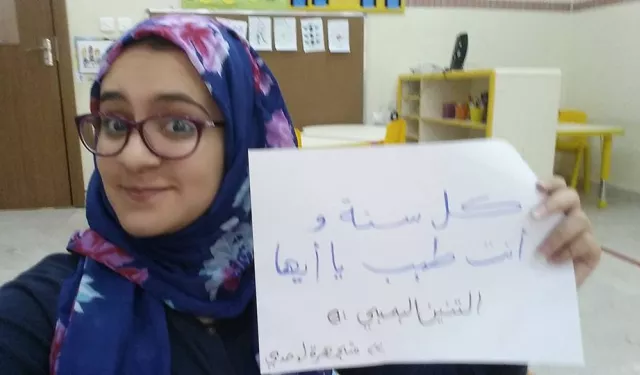 كل سنة و
أنت طيب يا أيها
التنين البمبي